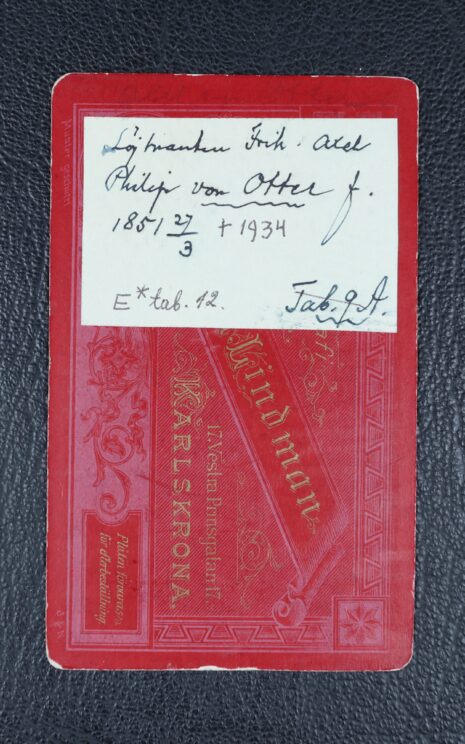 Löjtnanten Frih. Axel
Philip von Otter f.
1851 27/3 † 1934
E* tab. 12.
Tab. 9 A.
Lindman
17. Vestra Prinsgatan 17.
KARLSKRONA.
Plåten förvaras
för efterbeställning.